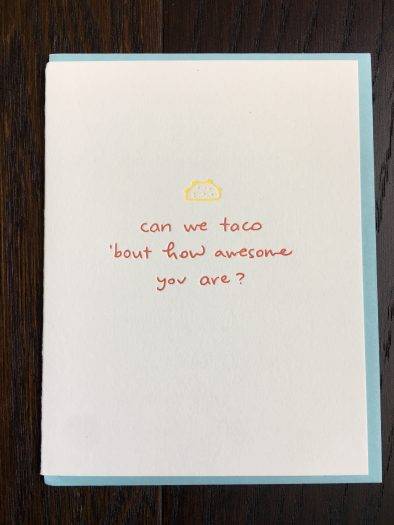 can we taco
'bout how awesome
you are?